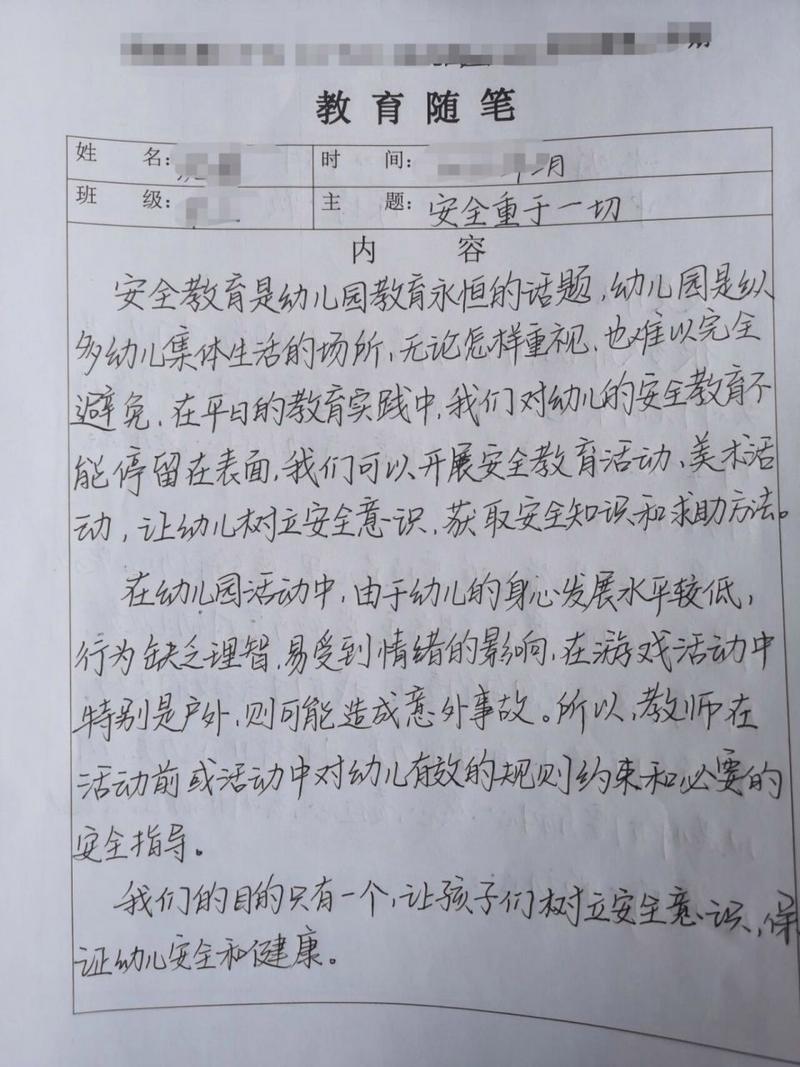 期
教育随笔
姓 名: 时 间: 年二月
班 级: 主 题: 安全重于一切
内 容
安全教育是幼儿园教育永恒的话题,幼儿园是纵
多幼儿集体生活的场所,无论怎样重视,也难以完全
避免,在平日的教育实践中,我们对幼儿的安全教育不
能停留在表面,我们可以开展安全教育活动、美术活
动,让幼儿树立安全意识,获取安全知识和求助方法。
在幼儿园活动中,由于幼儿的身心发展水平较低,
行为缺乏理智,易受到情绪的影响,在游戏活动中
特别是户外,则可能造成意外事故。所以,教师在
活动前或活动中对幼儿有效的规则约束和必要的
安全指导。
我们的目的只有一个,让孩子们树立安全意识,保
证幼儿安全和健康。